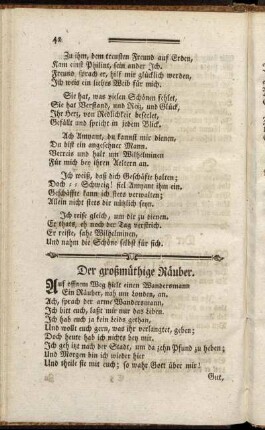 42
Zu ihm, dem treusten Freund auf Erden,
Kam einst Philint, sein ander Ich.
Freund, sprach er, hilf mir glücklich werden,
Ich weis ein liebes Weib für mich.
Sie hat, was vielen Schönen fehlet,
Sie hat Verstand, und Reiz, und Glück,
Ihr Herz, von Redlichkeit beseelet,
Gefällt und spricht in jedem Blick.
Ach Amyant, du kannst mir dienen.
Du bist ein angesehner Mann.
Verreis und halt um Wilhelminen
Für mich bey ihren Aeltern an.
Ich weiß, daß dich Geschäfte halten;
Doch Schweig! fiel Amyant ihm ein.
Geschäffte kann ich stets verwalten;
Allein nicht stets dir nützlich seyn.
Ich reise gleich, um dir zu dienen.
Er thats, eh noch der Tag verstrich.
Er reiste, sahe Wilhelminen,
Und nahm die Schöne selbst für sich.
Der großmüthige Räuber.
Auf offnem Weg hielt einen Wandersmann
Ein Räuber, nah um London, an.
Ach, sprach der arme Wandersmann,
Ich bitt euch, laßt mir nur das Leben.
Ich hab euch ja kein Leids gethan,
Und wollt euch gern, was ihr verlanget, geben;
Doch heute hab ich nichts bey mir.
Ich geh itzt nach der Stadt, um da zehn Pfund zu heben;
Und Morgen bin ich wieder hier
Und theile sie mit euch; so wahr Gott über mir!
Gut,